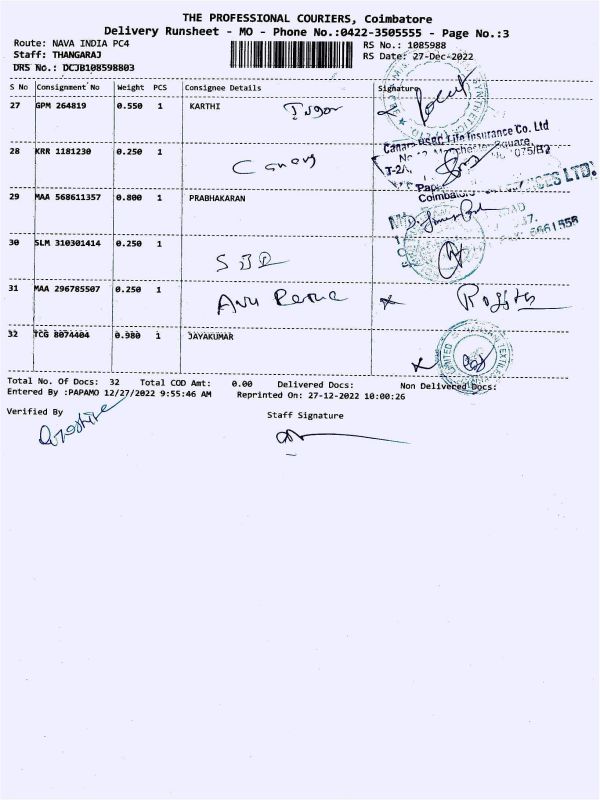 THE PROFESSIONAL COURIERS, Coimbatore
Delivery Runsheet - MO - Phone No.:0422-3505555 - Page No.:3
Route: NAVA INDIA PC4
RS No.: 1085988
Staff: THANGARAJ
RS Date: 27-Dec-2022
DRS No.: DCJB108598803
S No Consignment No Weight PCS Consignee Details Signature
27 GPM 264819 0.550 1 KARTHI
Canara HSBC Life Insurance Co. Ltd
28 KRR 1181230 0.250 1
Coimbatore
29 MAA 568611357 0.800 1 PRABHAKARAN
30 SLM 310301414 0.250 1
31 MAA 296785507 0.250 1
32 TCG 8074404 0.980 1 JAYAKUMAR
Total No. Of Docs: 32 Total COD Amt: 0.00 Delivered Docs: Non Delivered Docs:
Entered By :PAPAMO 12/27/2022 9:55:46 AM Reprinted On: 27-12-2022 10:00:26
Verified By
Staff Signature